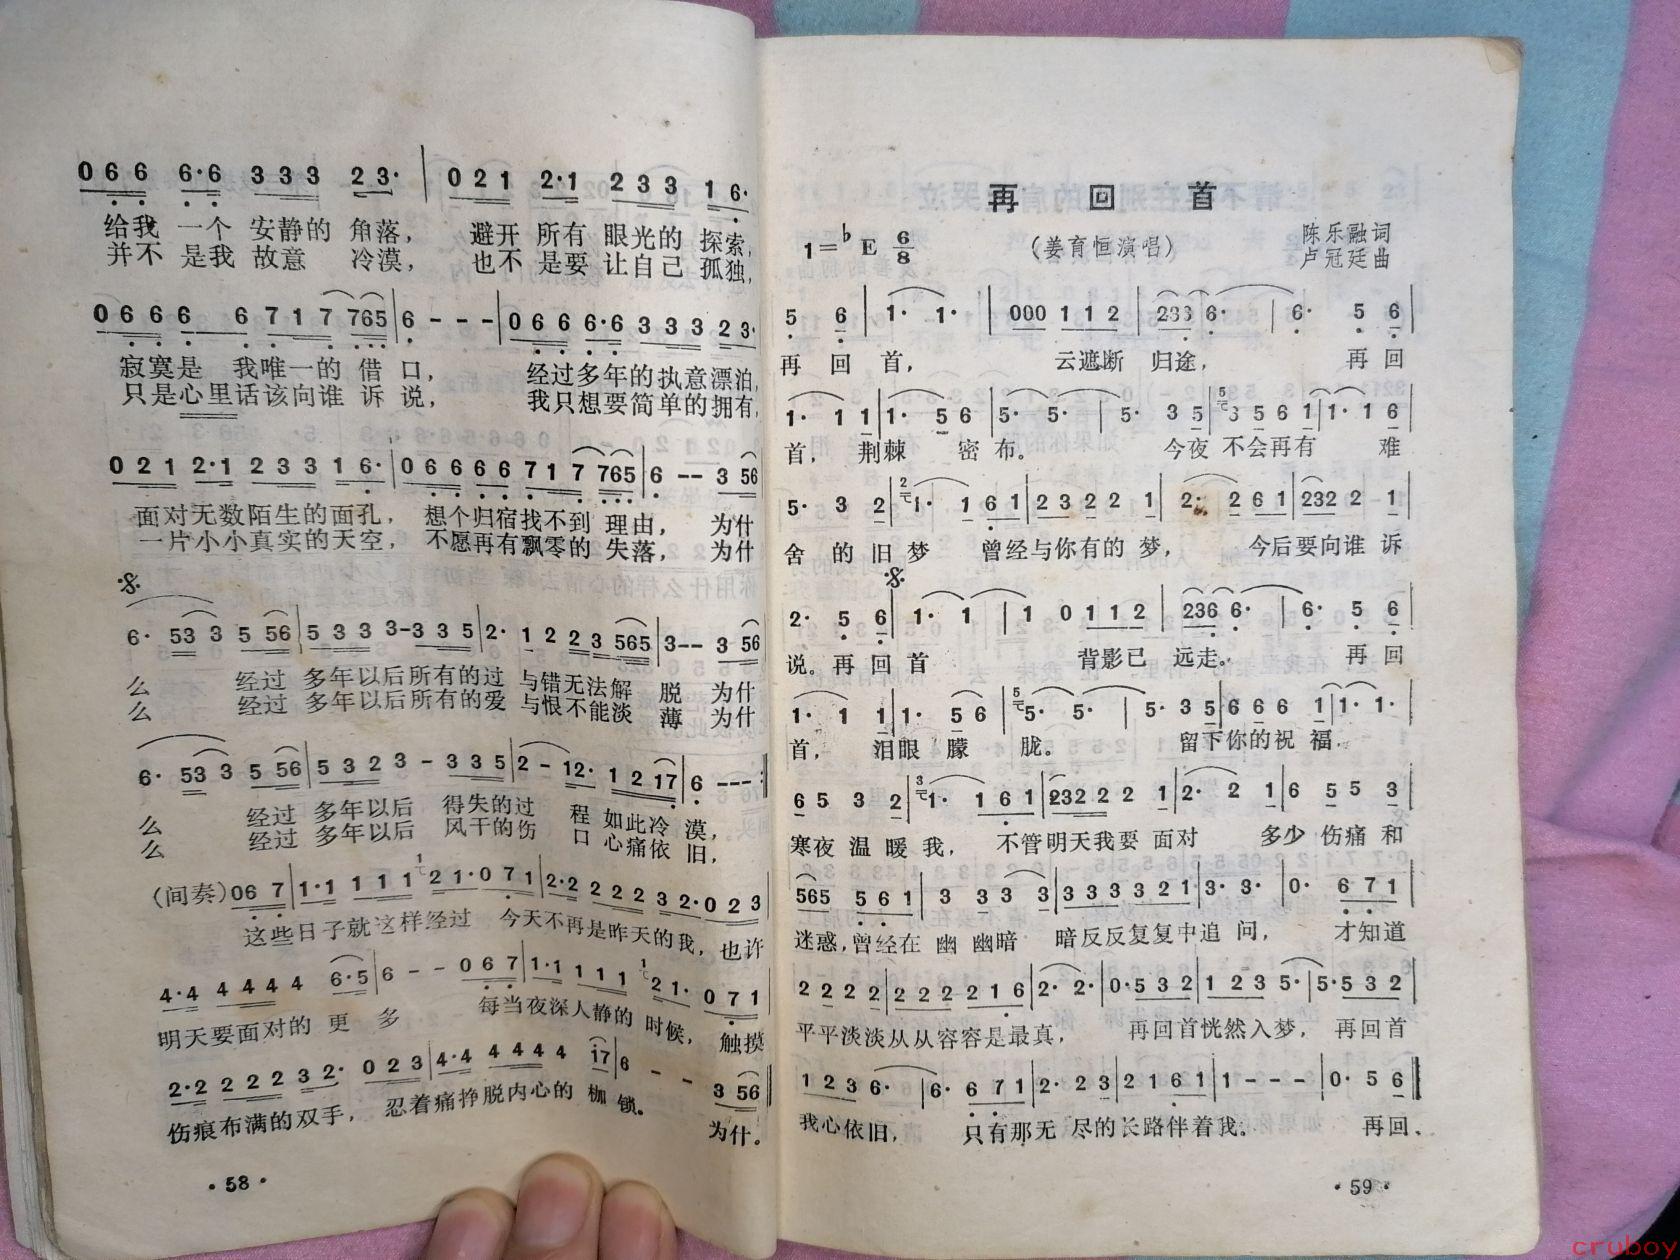 0 6 6 6·6 3 3 3 2 3· | 0 2 1 2·1 2 3 3 1 6·
给我 一个 安静的 角落， 避开 所有 眼光的 探索，
并不 是我 故意 冷漠， 也不 是要 让自己 孤独，
0 6 6 6 6 7 1 7 765 | 6 - - - | 0 6 6 6·6 3 3 3 2 3·
寂寞是 我唯一的 借 口， 经过多年的执意漂泊，
只是心里话该向谁 诉 说， 我只想要简单的拥有，
0 2 1 2·1 2 3 3 1 6· | 0 6 6 6 6 7 1 7 765 | 6 · - - 3 56
面对无数陌生的面孔， 想个归宿找不到 理由， 为什
一片小小真实的天空， 不愿再有飘零的 失落， 为什
6· 53 3 5 56 | 5 3 3 3-3 3 5 | 2· 1 2 2 3 565 | 3 - - 3 56
么 经过 多年以后所有的过 与错无法解 脱 为什
么 经过 多年以后所有的爱 与恨不能淡 薄 为什
6· 53 3 5 56 | 5 3 2 3 - 3 3 5 | 2 - 12· 1 2 17 | 6 - - -
么 经过 多年以后 得失的过 程 如此冷 漠，
么 经过 多年以后 风干的伤 口 心痛依 旧，
(间奏) 0 6 7 | 1·1 1 1 1 2 1·0 7 1 | 2·2 2 2 2 3 2·0 2 3
这些日子就这样经过 今天不再是昨天的我，也许
4·4 4 4 4 4 6·5 | 6 - - 0 6 7 | 1·1 1 1 1 2 1· 0 7 1
明天要面对的 更 多 每当夜深人静的 时候， 触摸
2·2 2 2 2 3 2· 0 2 3 | 4·4 4 4 4 4 17 | 6 - - 3 56
伤痕布满的双手， 忍着痛挣脱内心的 枷 锁。 为什。
·58·
再 回 首
1=♭E 6/8 （姜育恒演唱） 陈乐融词
卢冠廷曲
5 6 | 1· 1· | 000 1 1 2 | 233 6· | 6· 5 6
再 回 首， 云遮断 归途， 再 回
1· 1 1 | 1· 5 6 | 5· 5· | 5· 3 5 | 3 5 6 1 | 1· 1 6
首， 荆棘 密布。 今夜 不会再有 难
5· 3 2 | 1· 1 6 1 | 2 3 2 2 1 | 2· 2 6 1 | 232 2 1
舍 的旧 梦 曾经与你有的 梦， 今后要向谁 诉
2· 5 6 | 1· 1 | 1 0 1 1 2 | 236 6· | 6· 5 6
说。再 回 首 背影已 远走。 再 回
1· 1 1 | 1· 5 6 | 5· 5· | 5· 3 5 | 6 6 6 1 | 1· 1·
首， 泪眼 朦 胧。 留下你的祝 福．
6 5 3 2 | 1· 1 6 1 | 232 2 2 1 | 2· 2 1 | 6 5 5 3
寒夜 温 暖 我， 不管明天我要 面对 多少 伤痛 和
565 5 6 1 | 3 3 3 3 | 3 3 3 3 2 1 | 3· 3· | 0· 6 7 1
迷惑，曾经在 幽 幽暗 暗反反复复中追 问， 才知道
2 2 2 2 | 2 2 2 2 1 6 | 2· 2· | 0·5 3 2 | 1 2 3 5· | 5·5 3 2
平平淡淡从从容容是最真， 再回首恍然入梦，再回首
1 2 3 6· | 6· 6 7 1 | 2· 2 3 | 2 1 6 1 | 1 - - - | 0· 5 6
我心依旧， 只有那无 尽的长路伴着我。 再回．
·59·
cruboy